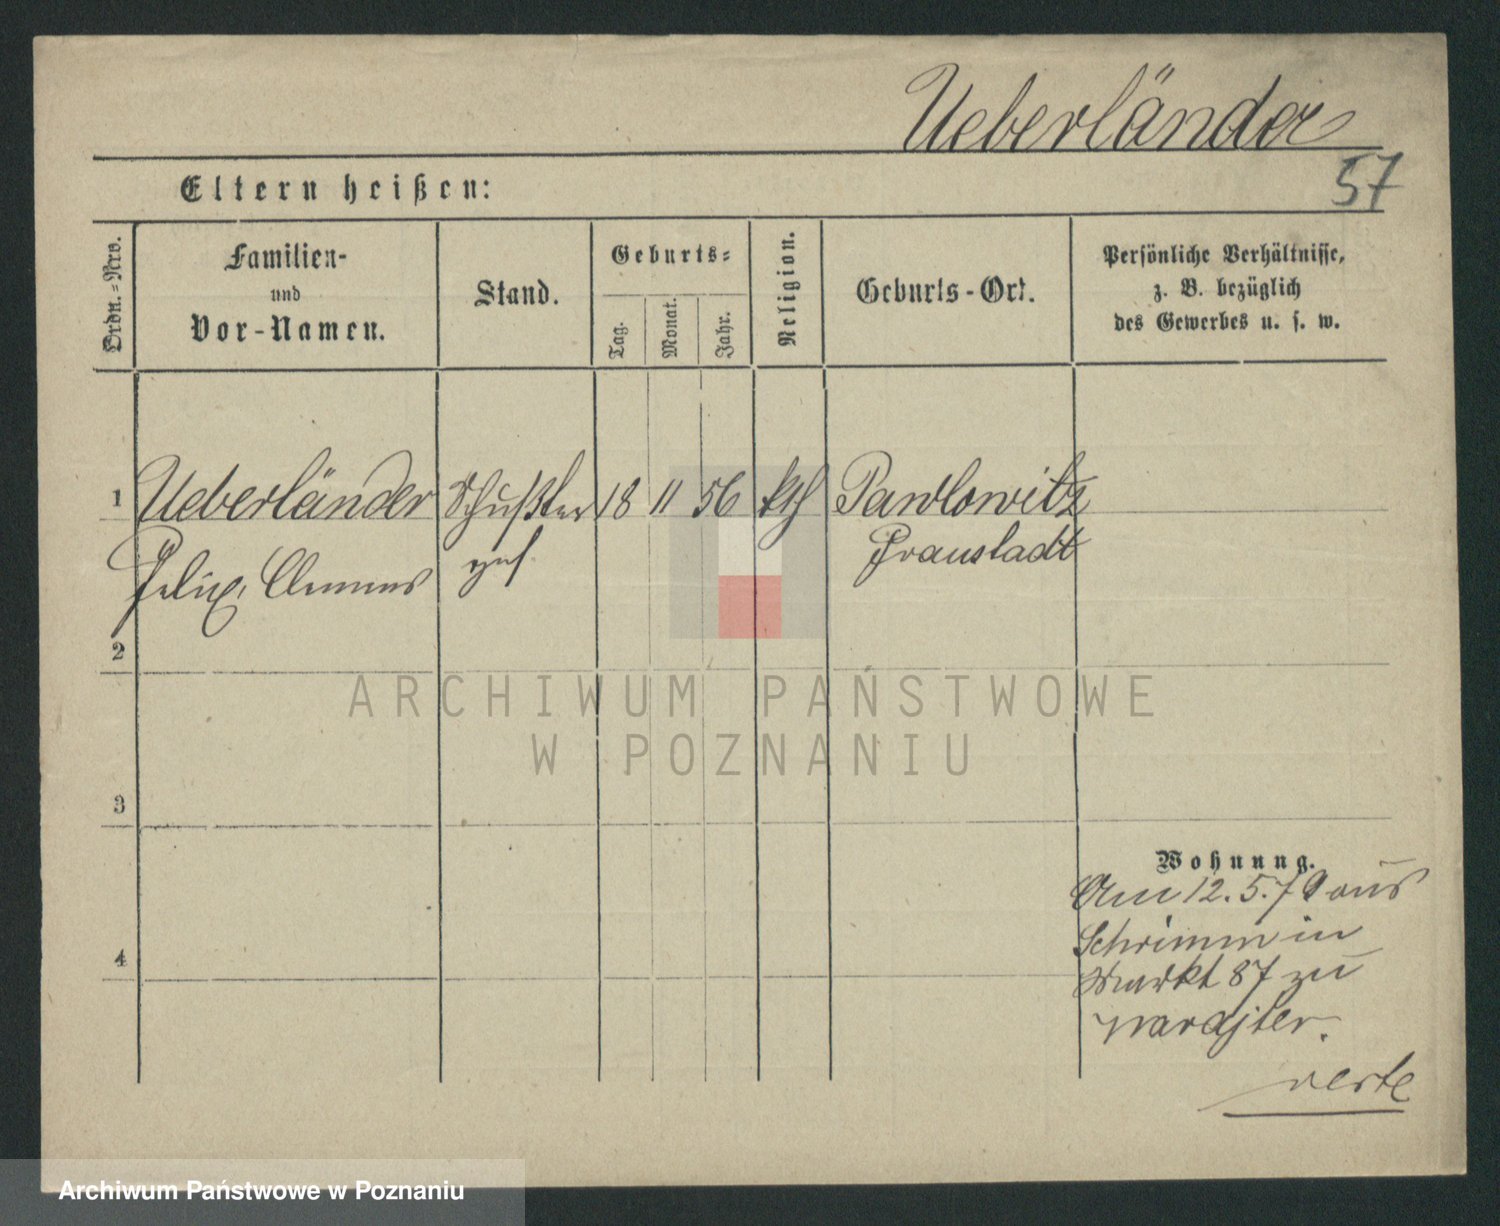 Ueberländer
57
Eltern heißen:
Ordn.=Nro.
Familien-
und
Vor-Namen.
Stand.
Geburts=
Tag.
Monat.
Jahr.
Religion.
Geburts-Ort.
Persönliche Verhältnisse,
z. B. bezüglich
des Gewerbes u. s. w.
1 Ueberländer Schuster 18 11 56 kth Pawlowitz
Felix, Clemens Fraustadt
2
3
4
Wohnung.
Am 12.5.79 aus
Schrimm in
Markt 87 zu
ARCHIWUM PAŃSTWOWE
W POZNANIU
Archiwum Państwowe w Poznaniu